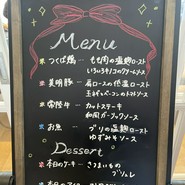 Menu
つくば鶏 ― もも肉の塩麹ロースト
いろいろキノコのクリームソース
美明豚 ― 肩ロースの低温ロースト
玉ねぎとベーコンのトマトソース
常陸牛 ― カットステーキ
和風ガーリックソース
お魚 ― ブリの塩麹ロースト
ゆずみそソース
Dessert
本日のケーキ ― さつまいもの
ブリュレ
本日のアイス